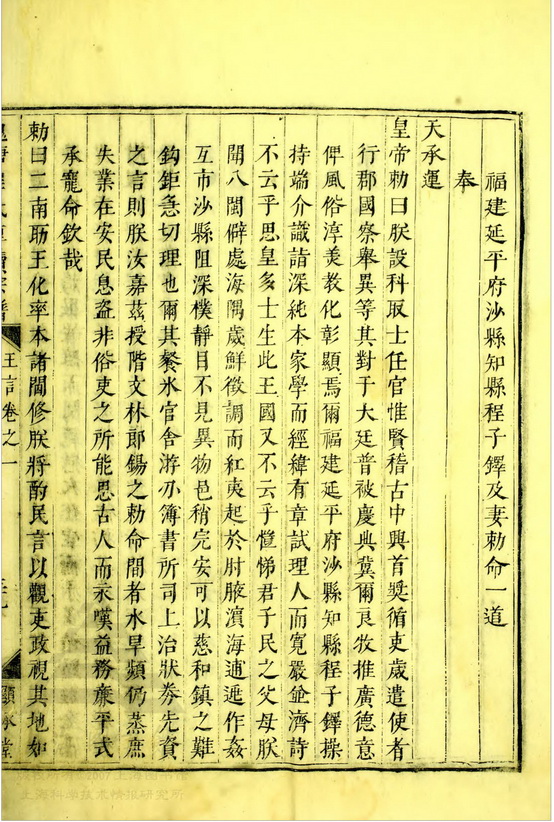 福建延平府沙縣知縣程子鐸及妻勅命一道
奉
天承運
皇帝勅曰朕設科取士任官惟賢稽古中興首奬循吏歲遣使者
行郡國察舉異等其對于大廷普被慶典冀爾良牧推廣德意
俾風俗淳美教化彰顯焉爾福建延平府沙縣知縣程子鐸操
持端介識詣深純本家學而經緯有章試理人而寬嚴並濟詩
不云乎思皇多士生此王國又不云乎愷悌君子民之父母朕
聞八閩僻處海隅歲鮮徵調而紅夷起於肘腋濱海逋逃作姦
互市沙縣阻深樸靜目不見異物邑稍完安可以慈和鎮之難
鈎鉅急切理也爾其餐氷官舍游刃簿書所司上治狀券先資
之言則朕汝嘉茲授階文林郎錫之勅命間者水旱頻仍蒸庶
失業在安民息盜非俗吏之所能思古人而永嘆益務廉平式
承寵命欽哉
勅曰二南助王化率本諸閫修朕將酌民言以觀吏政視其地如
王言卷之一
上海科学技术情报研究所